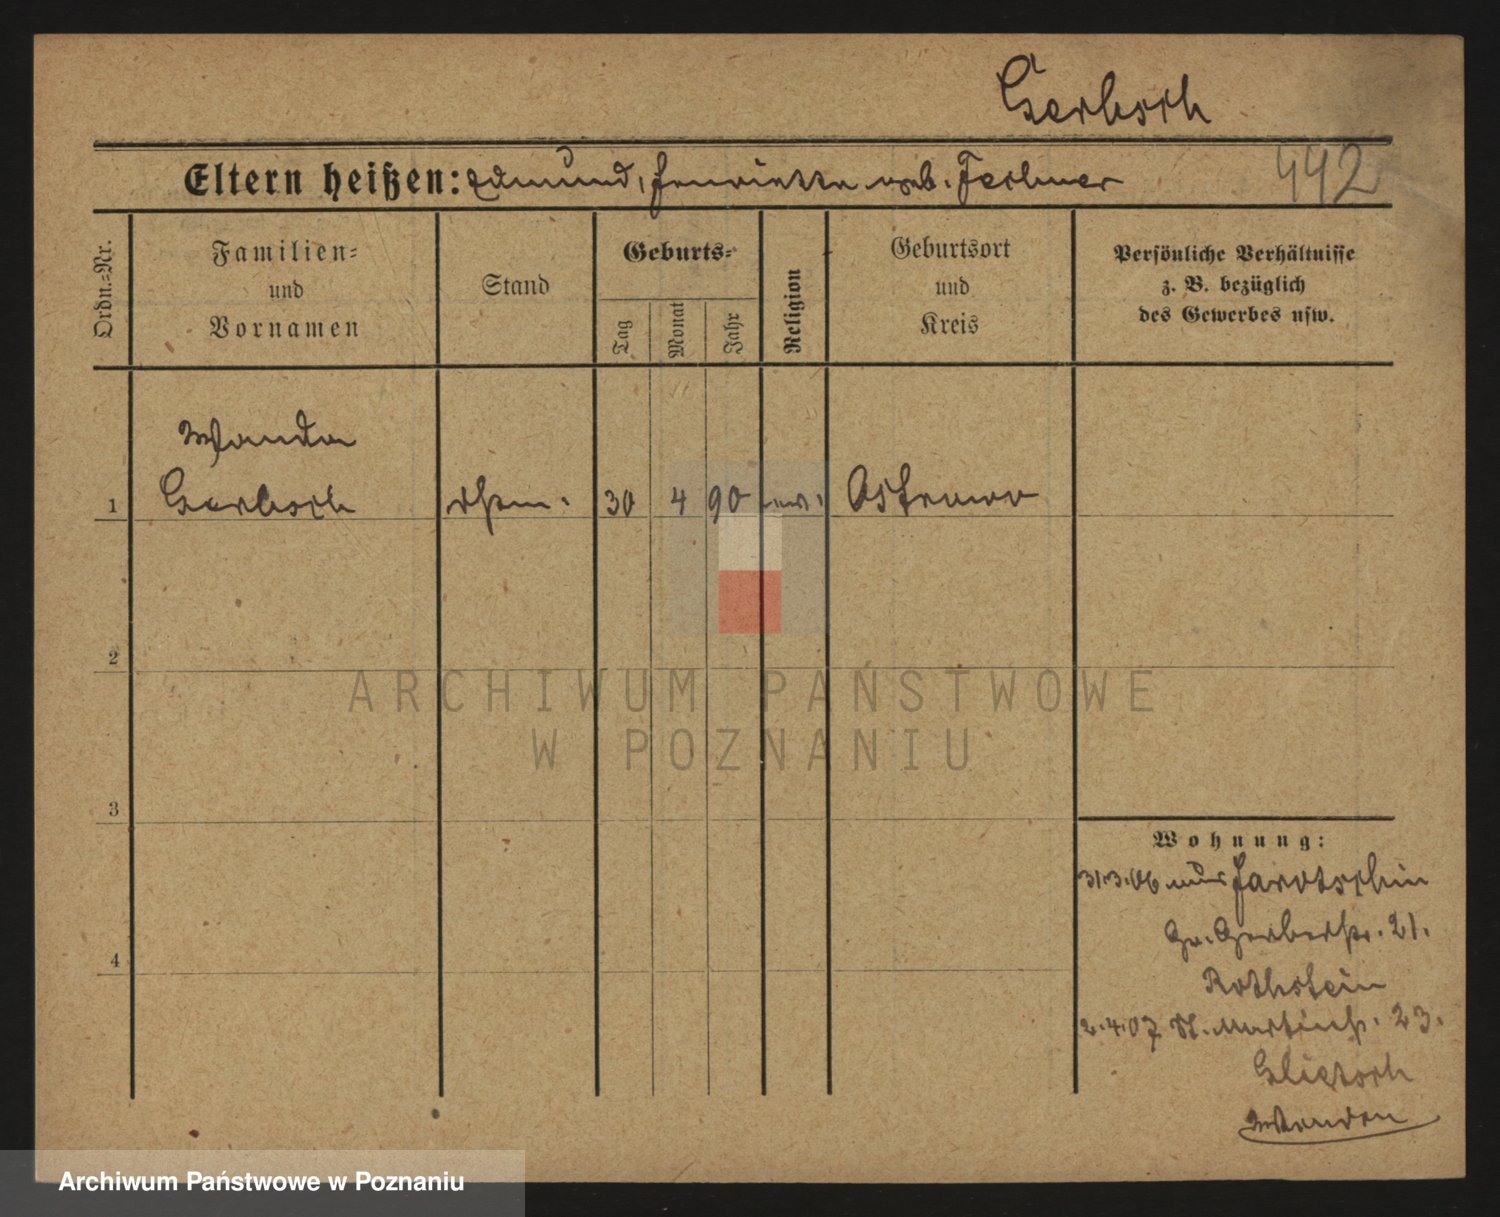 Gerbsch
Eltern heißen: Edmund, Henriette geb. Fechner
442
Ordn.-Nr.
Familien-
und
Vornamen
Stand
Geburts-
Tag
Monat
Jahr
Religion
Geburtsort
und
Kreis
Persönliche Verhältnisse
z. B. bezüglich
des Gewerbes usw.
Wanda
1 Gerbsch 30 4 90 Ostrowo
2
3
4
ARCHIWUM PAŃSTWOWE
W POZNANIU
Wohnung:
31.3.06 aus Jarotschin
Gr. Gerberstr. 21.
Rothstein
2.4.07 St. Martinstr. 23.
Archiwum Państwowe w Poznaniu